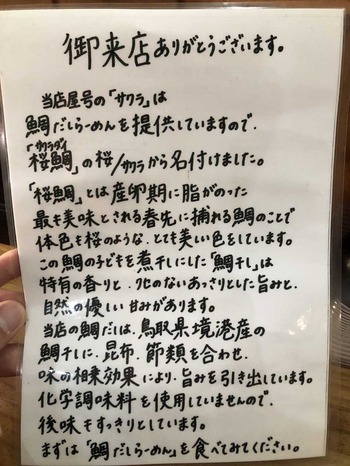 御来店ありがとうございます。
当店屋号の「サクラ」は
鯛だしらーめんを提供していますので、
「桜鯛」の桜/サクラから名付けました。
サクラダイ
「桜鯛」とは産卵期に脂がのった
最も美味とされる春先に捕れる鯛のことで
体色も桜のような、とても美しい色をしています。
この鯛の子どもを煮干しにした「鯛干し」は
特有の香りと、クセのないあっさりとした旨みと、
自然の優しい甘みがあります。
当店の鯛だしは、鳥取県境港産の
鯛干しに、昆布、節類を合わせ、
味の相乗効果により、旨みを引き出しています。
化学調味料を使用していませんので、
後味もすっきりとしています。
まずは「鯛だしらーめん」を食べてみてください。